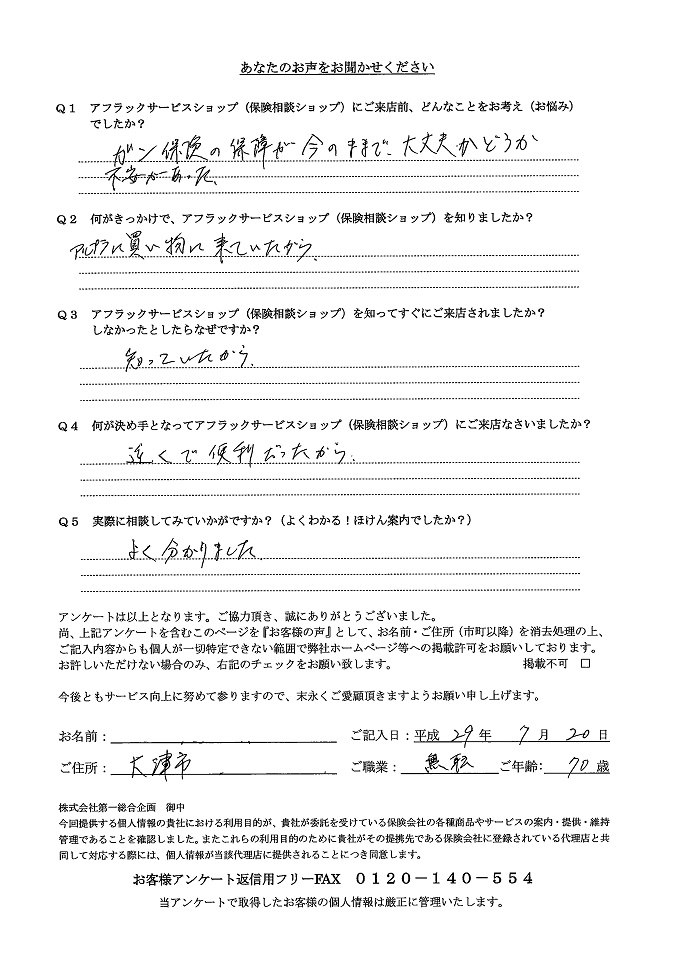 あなたのお声をお聞かせください
Q1 アフラックサービスショップ（保険相談ショップ）にご来店前、どんなことをお考え（お悩み）
でしたか？
ガン保険の保障が今のままで、大丈夫かどうか
不安があった。
Q2 何がきっかけで、アフラックサービスショップ（保険相談ショップ）を知りましたか？
アルプラに買い物に来ていたから。
Q3 アフラックサービスショップ（保険相談ショップ）を知ってすぐにご来店されましたか？
しなかったとしたらなぜですか？
知っていたから。
Q4 何が決め手となってアフラックサービスショップ（保険相談ショップ）にご来店なさいましたか？
近くで便利だったから。
Q5 実際に相談してみていかがですか？（よくわかる！ほけん案内でしたか？）
よく分かりました
アンケートは以上となります。ご協力頂き、誠にありがとうございました。
尚、上記アンケートを含むこのページを『お客様の声』として、お名前・ご住所（市町以降）を消去処理の上、
ご記入内容からも個人が一切特定できない範囲で弊社ホームページ等への掲載許可をお願いしております。
お許しいただけない場合のみ、右記のチェックをお願い致します。 掲載不可 □
今後ともサービス向上に努めて参りますので、末永くご愛顧頂きますようお願い申し上げます。
お名前： ご記入日：平成 29 年 7 月 20 日
ご住所： 大津市 ご職業： 無職 ご年齢： 70 歳
株式会社第一総合企画 御中
今回提供する個人情報の貴社における利用目的が、貴社が委託を受けている保険会社の各種商品やサービスの案内・提供・維持
管理であることを確認しました。またこれらの利用目的のために貴社がその提携先である保険会社に登録されている代理店と共
同して対応する際には、個人情報が当該代理店に提供されることにつき同意します。
お客様アンケート返信用フリーFAX 0120－140－554
当アンケートで取得したお客様の個人情報は厳正に管理いたします。